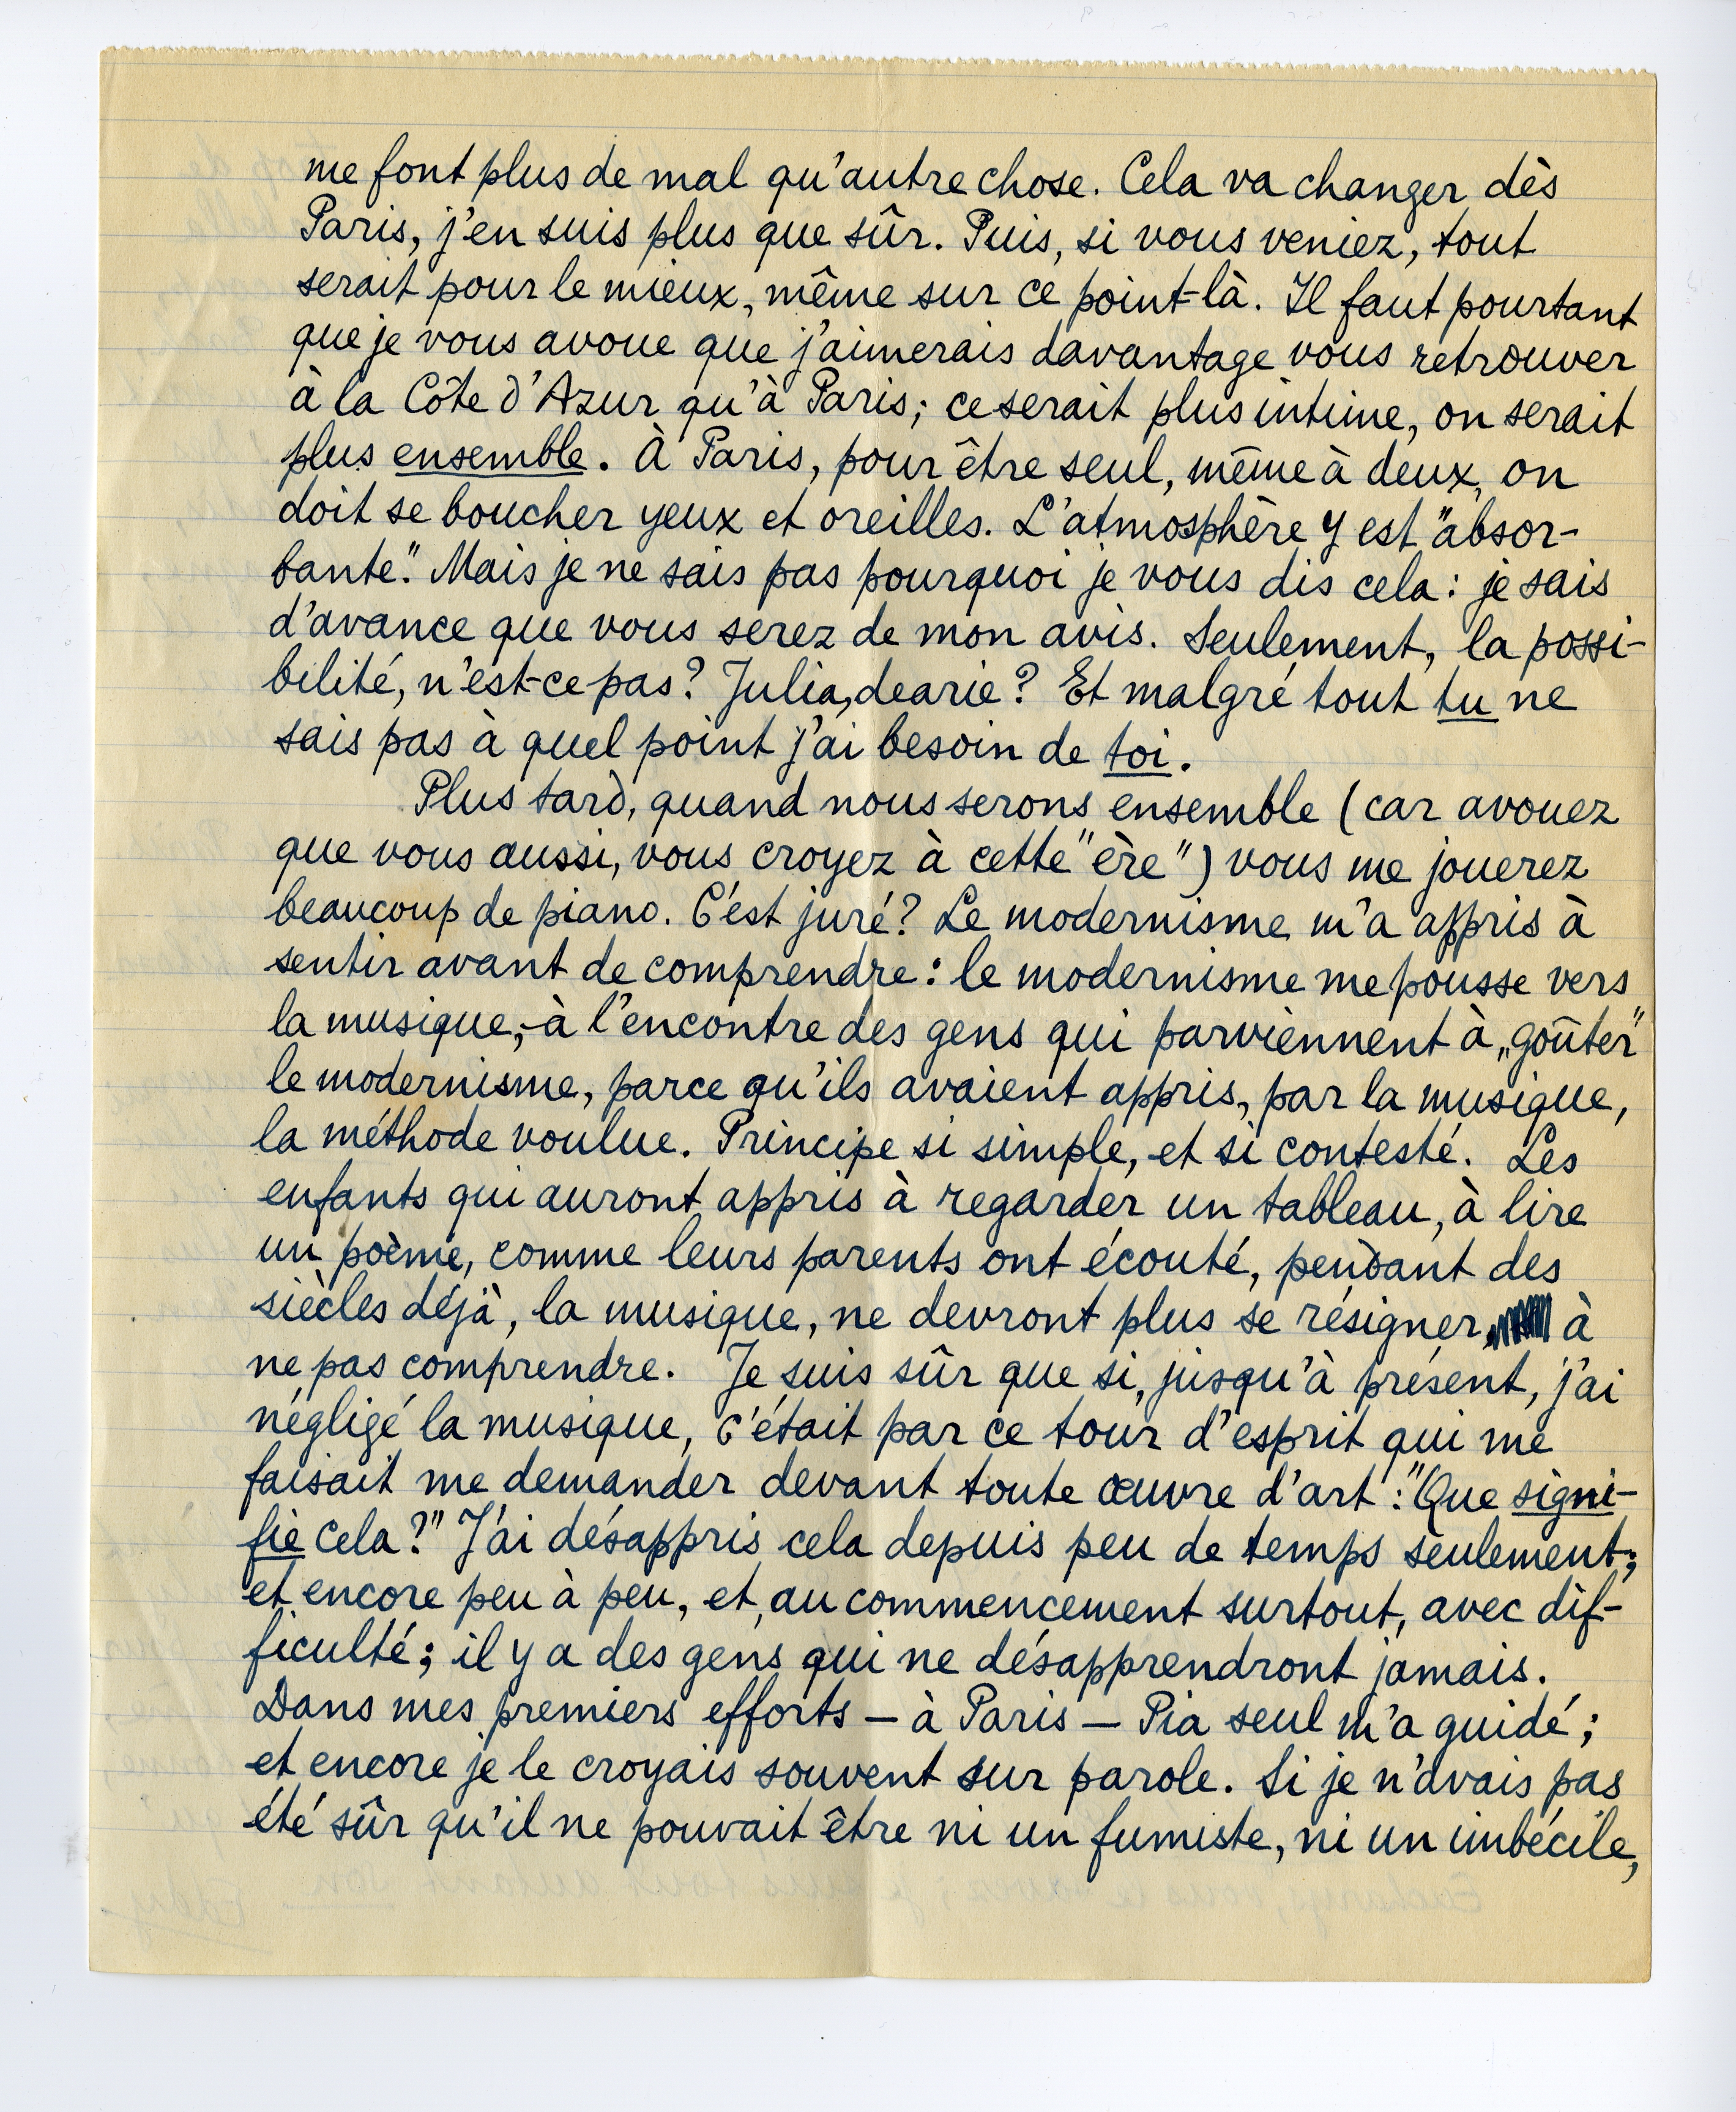 me font plus de mal qu'autre chose. Cela va changer dès
Paris, j'en suis plus que sûr. Puis, si vous veniez, tout
serait pour le mieux, même sur ce point-là. Il faut pourtant
que je vous avoue que j'aimerais davantage vous retrouver
à la Côte d'Azur qu'à Paris; ce serait plus intime, on serait
plus ensemble. À Paris, pour être seul, même à deux, on
doit se boucher yeux et oreilles. L'atmosphère y est "absor-
bante". Mais je ne sais pas pourquoi je vous dis cela: je sais
d'avance que vous serez de mon avis. Seulement, la possi-
bilité, n'est-ce pas? Julia, dearie? Et malgré tout tu ne
sais pas à quel point j'ai besoin de toi.
Plus tard, quand nous serons ensemble (car avouez
que vous aussi, vous croyez à cette "ère") vous me jouerez
beaucoup de piano. C'est juré? Le modernisme m'a appris à
sentir avant de comprendre: le modernisme me pousse vers
la musique,-à l'encontre des gens qui parviennent à „goûter"
le modernisme, parce qu'ils avaient appris, par la musique,
la méthode voulue. Principe si simple, et si contesté. Les
enfants qui auront appris à regarder un tableau, à lire
un poème, comme leurs parents ont écouté, pendant des
siècles déjà, la musique, ne devront plus se résigner à
ne pas comprendre. Je suis sûr que si, jusqu'à présent, j'ai
négligé la musique, c'était par ce tour d'esprit qui me
faisait me demander devant toute œuvre d'art: "Que signi-
fie cela?" J'ai désappris cela depuis peu de temps seulement;
et encore peu à peu, et, au commencement surtout, avec dif-
ficulté; il y a des gens qui ne désapprendront jamais.
Dans mes premiers efforts — à Paris — Pia seul m'a guidé;
et encore je le croyais souvent sur parole. Si je n'avais pas
été sûr qu'il ne pouvait être ni un fumiste, ni un imbécile,